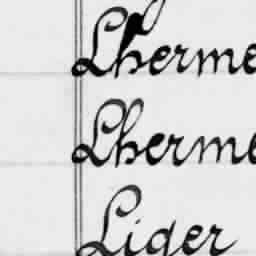 Lherme
Lherme
Liger